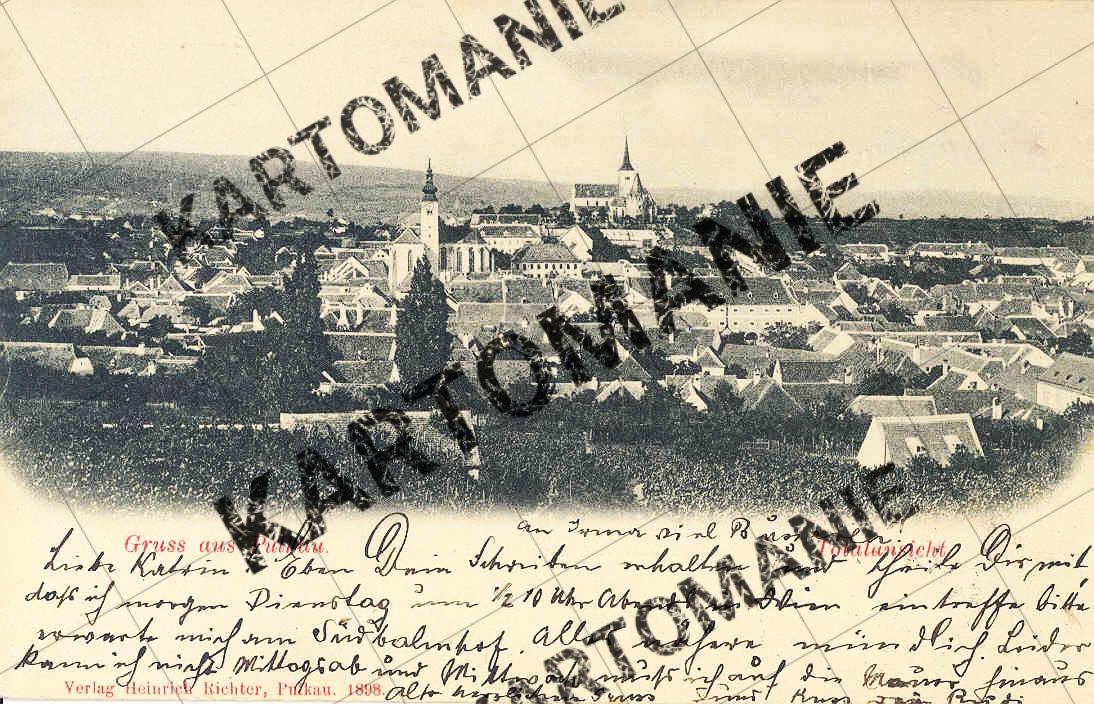 KARTOMANIE
KARTOMANIE
an Irma viel
Gruss aus Pulkau.
Totalansicht.
Liebe Katrin! Eben Dein Schreiben erhalten und theile Dir mit
daß ich morgen Dienstag um ½ 10 Uhr Abends in Wien eintreffe bitte
erwarte mich am Südbahnhof. Alles nähere mündlich Leider
kann ich nicht Mittags ab und Mittwoch muß ich auf die Mauer hinaus
Verlag Heinrich Richter, Pulkau. 1898.
Also
Gruss und Kuss
Rudi
KARTOMANIE
KARTOMANIE